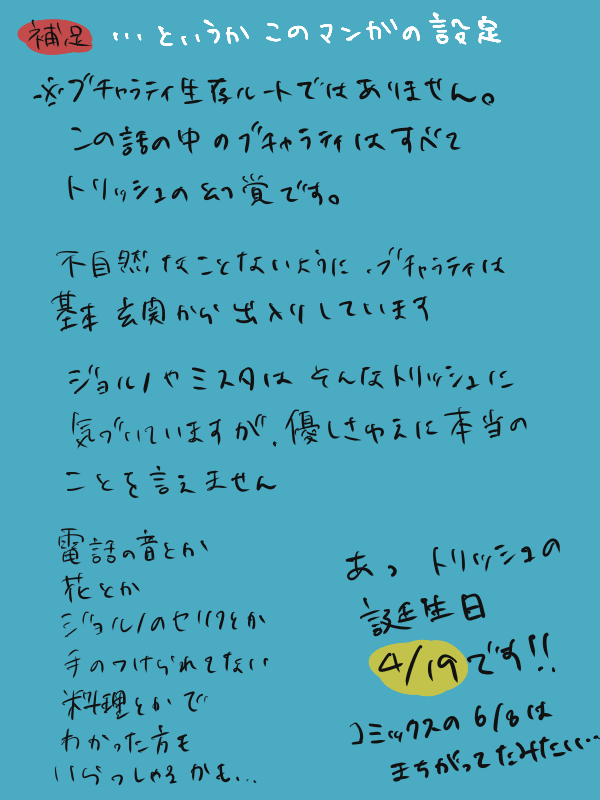 補足 …というかこのマンガの設定
※ブチャラティ生存ルートではありません。
この話の中のブチャラティはすべて
トリッシュの幻覚です。
不自然なことないように、ブチャラティは
基本玄関から出入りしています
ジョルノやミスタはそんなトリッシュに
気づいていますが、優しさゆえに本当の
ことを言えません
電話の音とか
花とか
ジョルノのセリフとか
手のつけられてない
料理とかで
わかった方も
いらっしゃるかも…
あっ トリッシュの
誕生日
4/19です!!
コミックスの6/8は
まちがってたみたい…